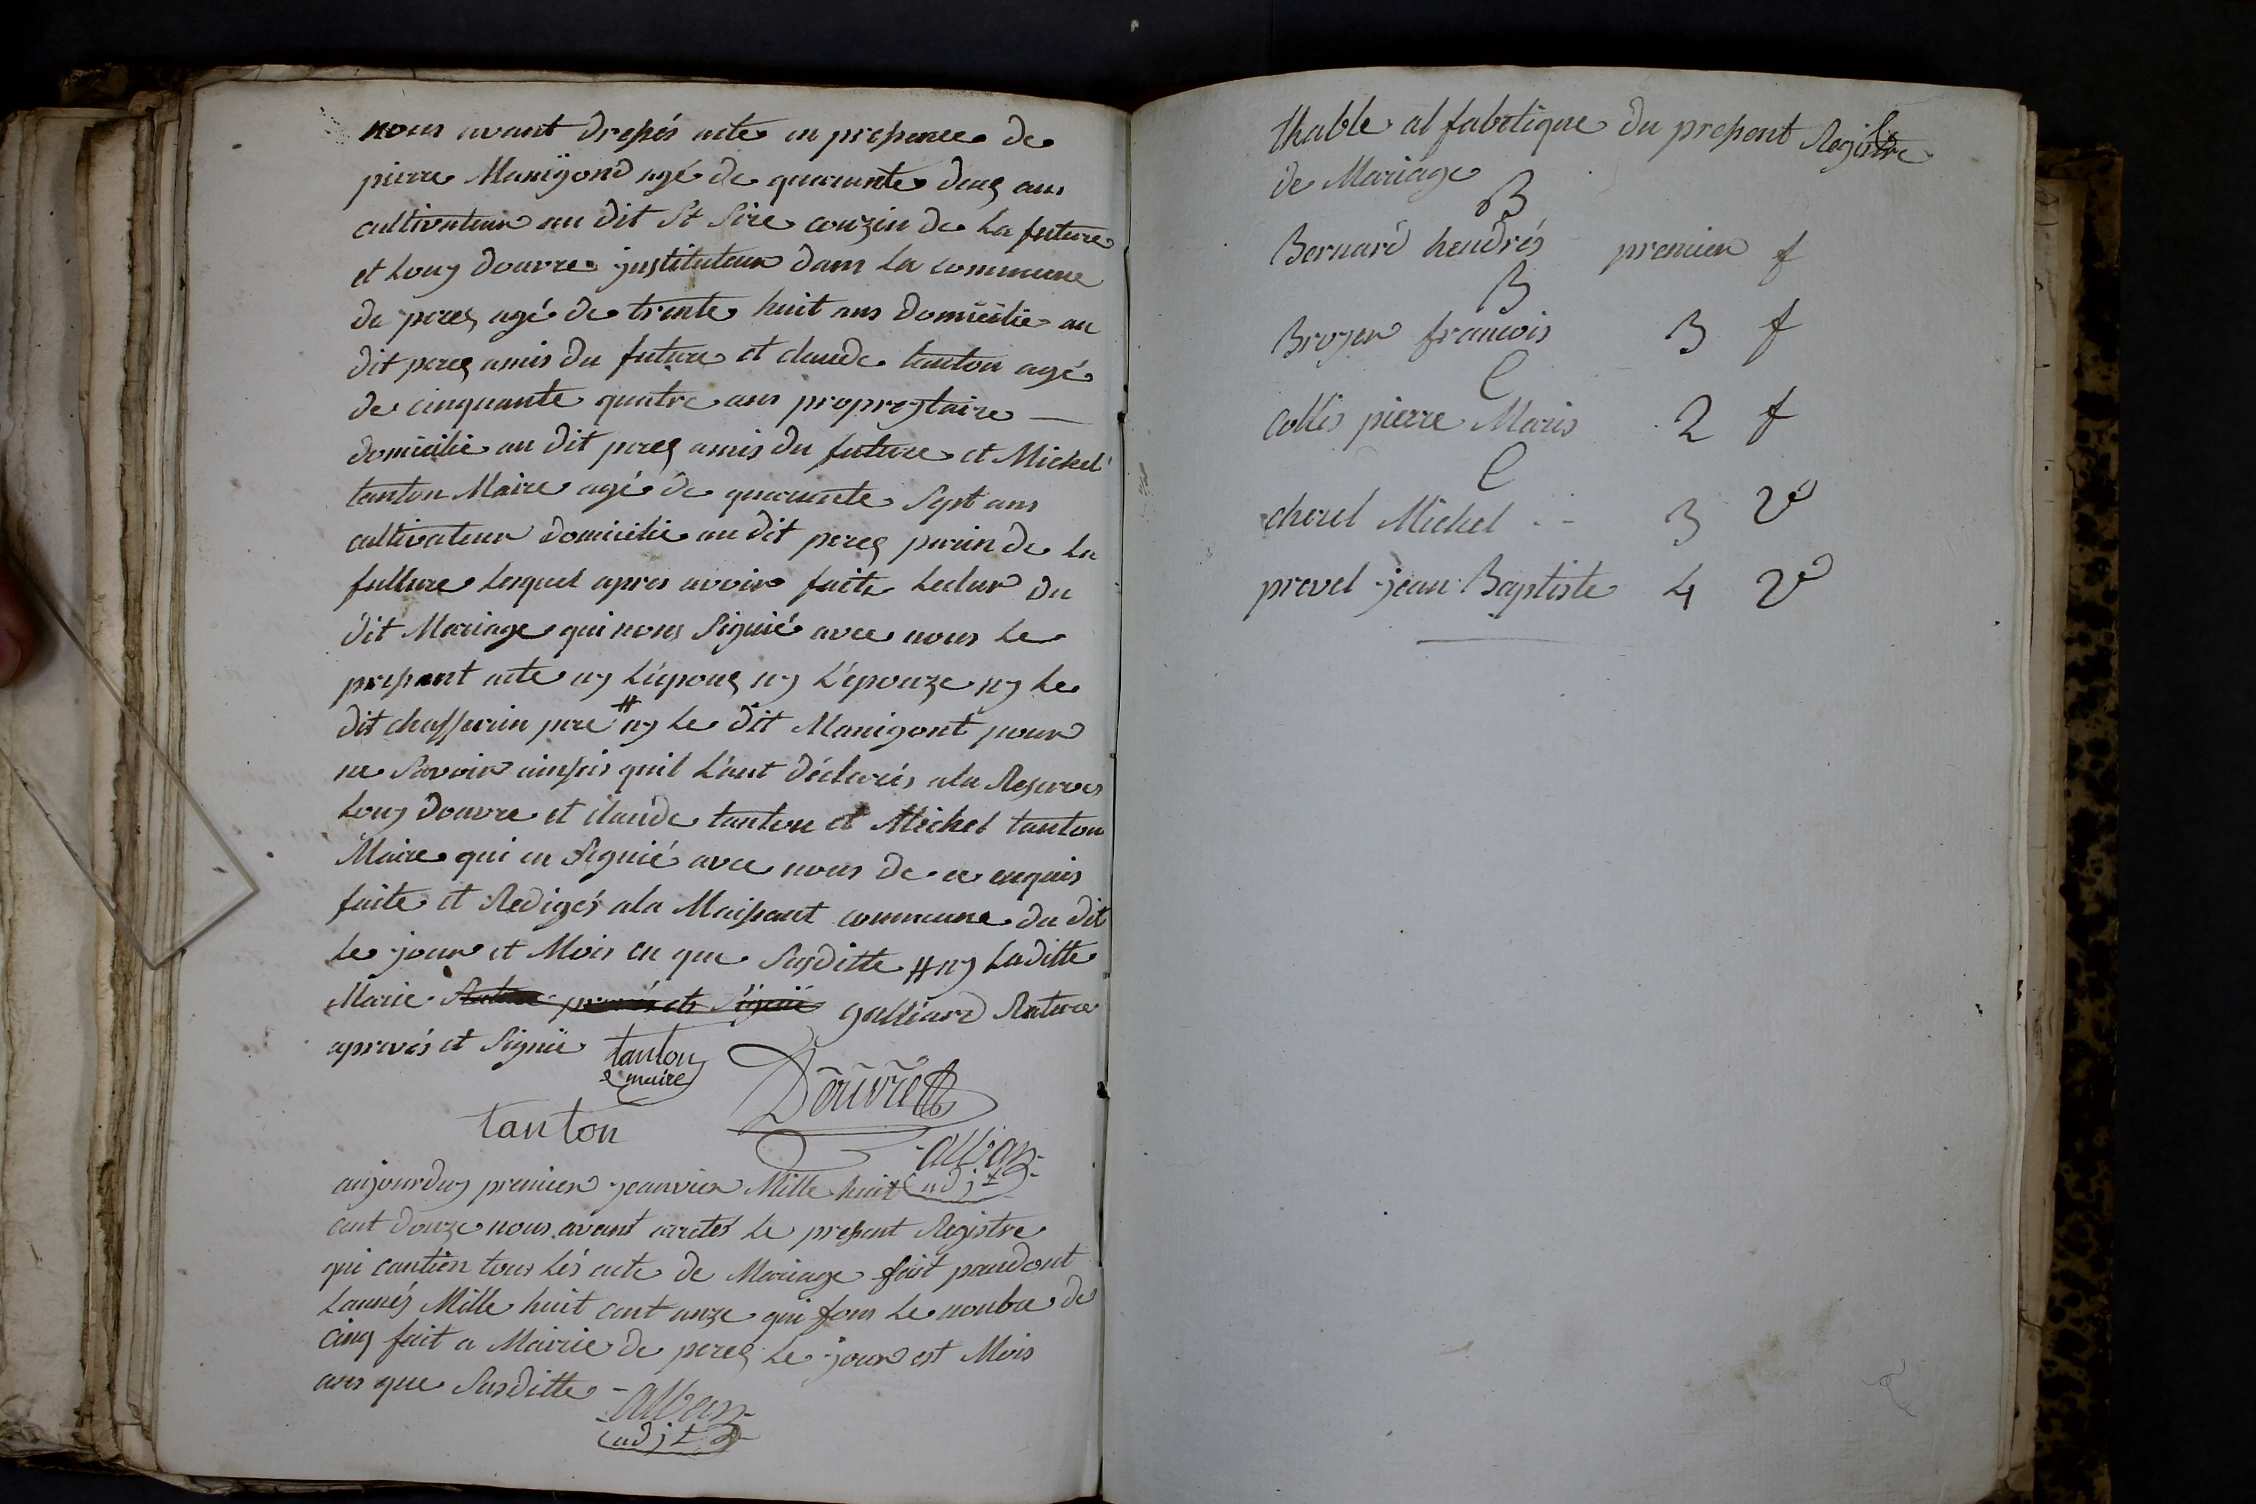 nous avant dressés acte en presence de
pierre Manigond agé de quarante deux ans
cultivateur au dit St Sire couzin de La future
et Louy douvre justituteur dans La commune
de perez agé de trente huit ans domicilie au
dit perez amis du future et claude tanton agé
de cinquante quatre ans propryetaire —
domicilie au dit perez amis du future et Michel
tanton Maire agé de quarante Sept ans
cultivateur domicilié au dit perez parin de La
future Lesquel apres avoir faite Lectur du
dit Mariage qui nons Signié avec nous Le
present acte ny L'épouz ny L'épouze ny Le
dit chasserin pere # ny Le dit Manigont pour
ne Savoir ainsis quil L'ant déclarés ala Reserves
Louy Douvre et claude tanton et Michel tanton
Maire qui en Signié avec nous de ce enquis
faite et Redigés ala Maissont commune du dit
Le jour et Mois en que Susditte # ny Laditte
Marie galliard Rature
aprovés et Signié tanton
maire
Douvre
tanton
alban
adjt
aujourduy premier jeanvier Mille huit
cent douze nous avant arretés Le present Registre
qui contien tous Lés acte de Mariage fait pandont
Lannés Mille huit cent onze qui fons Le nonbre de
cinq fait a Mairie de perez Le jour est Mois
ans que Susditte
alban
adjt
thable alfabetique du present Registre
de Mariage
B
Bernard hendrés premier f
B
Broyer francois 3 f
C
collis pierre Maris 2 f
C
cherel Michel -- 3 v°
prevel jean Baptiste 4 v°